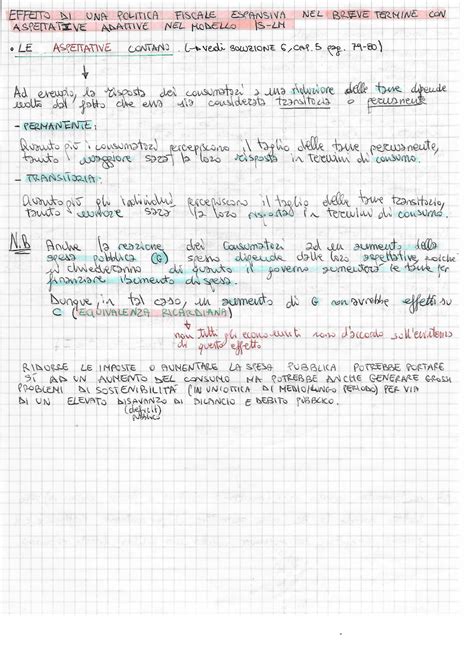 EFFETTO DI UNA POLITICA FISCALE ESPANSIVA NEL BREVE TERMINE CON
ASPETTATIVE ADATTIVE NEL MODELLO IS-LM
• LE ASPETTATIVE CONTANO. (→ vedi soluzione 6, CAP. 5 pag. 79-80)
Ad esempio, la risposta dei consumatori a una riduzione delle tasse dipende
molto dal fatto che essa sia considerata transitoria o permanente
- PERMANENTE:
Quanto più i consumatori percepiscono il taglio delle tasse permanente,
tanto maggiore sarà la loro risposta in termini di consumo.
- TRANSITORIA:
Quanto più gli individui percepiscono il taglio delle tasse transitorio,
tanto minore sarà la loro risposta in termini di consumo.
N.B Anche la reazione dei consumatori ad un aumento della
spesa pubblica (G) spesso dipende dalle loro aspettative, poiché
si chiederanno di quanto il governo aumenterà le tasse per
finanziare l'aumento di spesa.
Dunque, in tal caso, un aumento di G non avrebbe effetti su
C (EQUIVALENZA RICARDIANA)
→ non tutti gli economisti sono d'accordo sull'esistenza
di questo effetto.
RIDURRE LE IMPOSTE O AUMENTARE LA SPESA PUBBLICA POTREBBE PORTARE
SÌ AD UN AUMENTO DEL CONSUMO MA POTREBBE ANCHE GENERARE GROSSI
PROBLEMI DI SOSTENIBILITÀ (IN UN'OTTICA DI MEDIO/LUNGO PERIODO) PER VIA
DI UN ELEVATO DISAVANZO DI BILANCIO E DEBITO PUBBLICO.
(deficit)